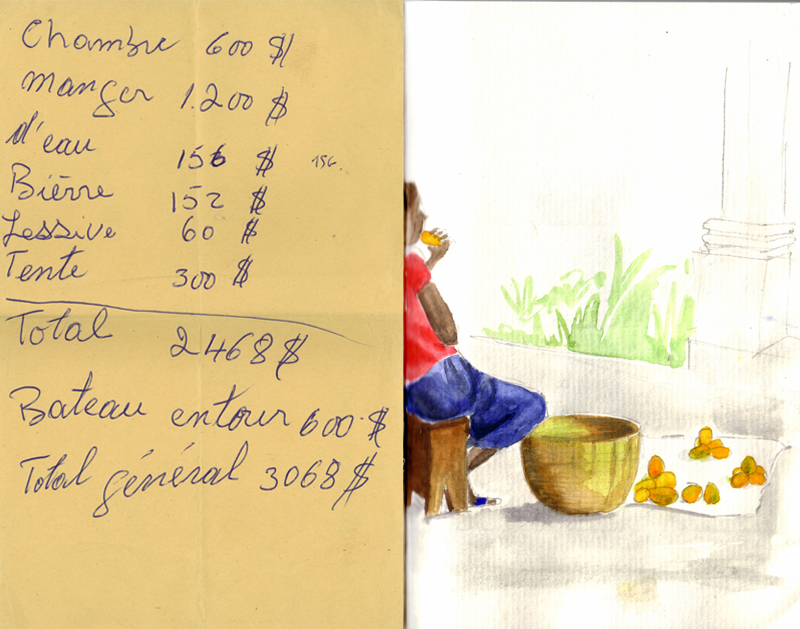 Chambre 600 $
manger 1.200 $
d'eau 156 $ 156.
Bière 152 $
Lessive 60 $
Tente 300 $
Total 2468 $
Bateau entour 600 $
Total général 3068 $